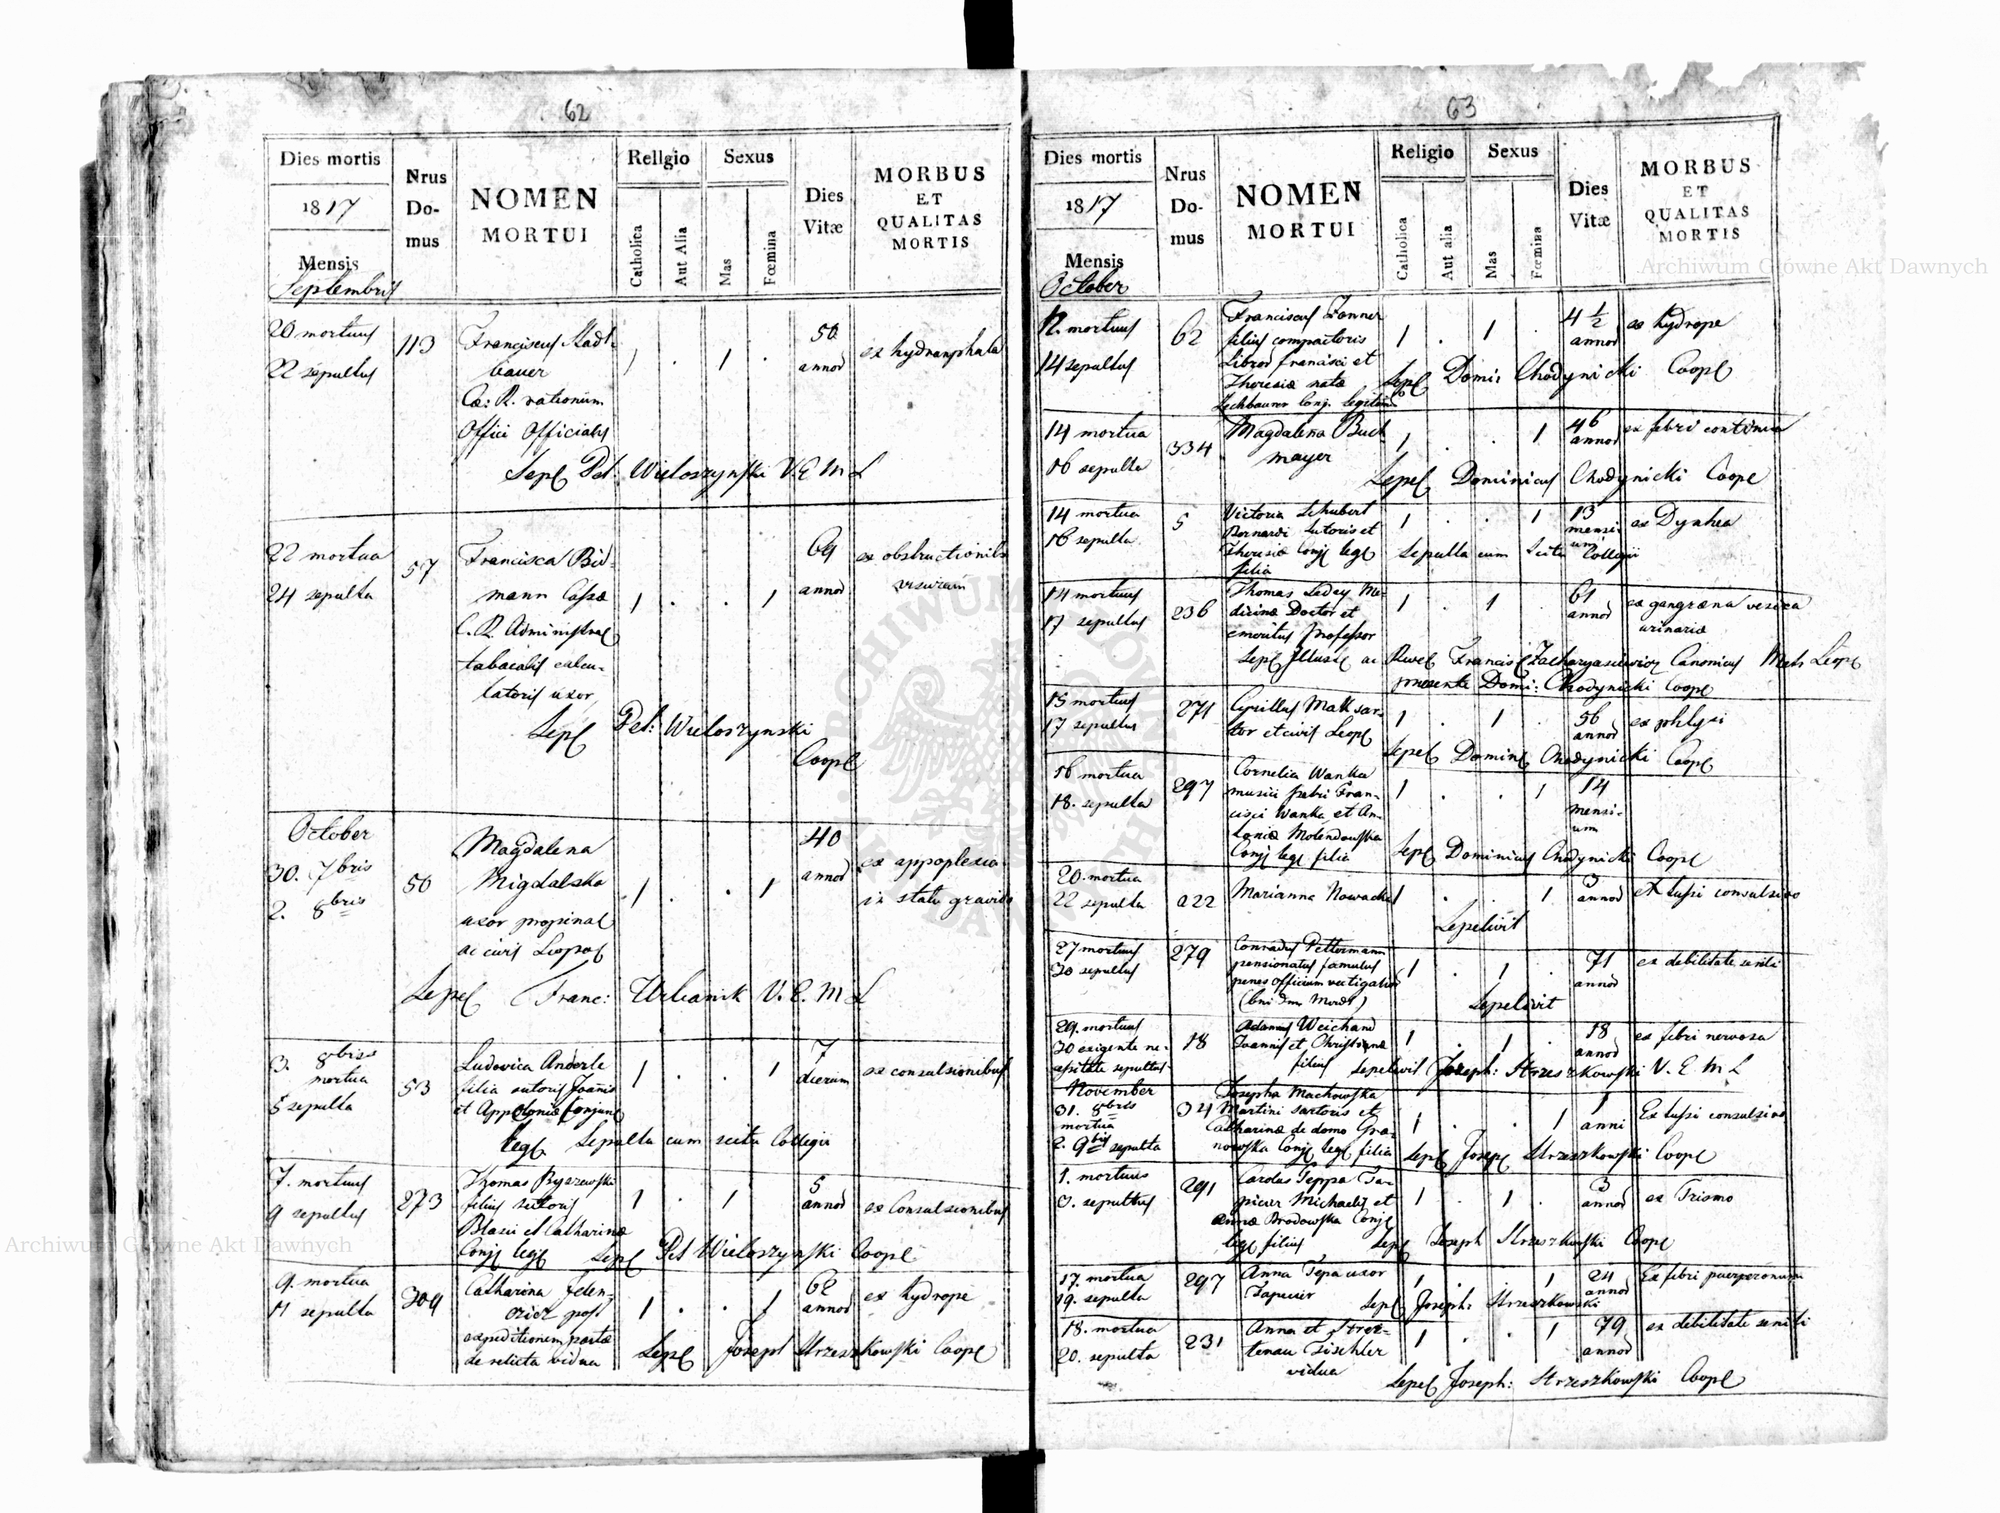 62
Dies mortis
1817
Mensis
Septembris
Nrus Do-mus
NOMEN
MORTUI
Religio
Catholica
Aut Alia
Sexus
Mas
Fœmina
Dies
Vitæ
MORBUS
ET
QUALITAS
MORTIS
20 mortuus
22 sepultus
113
Franciscus Stadl-
bauer
Cæ: R. rationum
Offici Officialis
1 . 1 .
50
annor
ex hydrocephala
Sepel Pet: Wieloszynski V. E. M. L
22 mortua
24 sepulta
57
Francisca Bid-
mann Cassæ
C. R. Administrat
tabacalis calcu-
latoris uxor
1 . . 1
69
annor
ex obstructionib
viscerum
Sepel Pet: Wieloszynski
Coopl
October
30. 7bris
2. 8bris
50
Magdalena
Migdalska
uxor propinat
ac civis Leopol
1 . . 1
40
annor
ex appoplexia
in statu gravido
Sepel Franc: Urbanik V. E. M L
3. 8bris
mortua
5 sepulta
53
Ludovica Anderle
filia sutoris Joanis
et Appoloniæ Conjug
legl Sepulta cum scitu Collegii
1 . . 1
7
dierum
ex consulsionibus
7. mortuus
9 sepultus
273
Thomas Ryszewski
filius sutoris
Blasii et Catharinæ
Conjl legl Sepl Pet Wieloszynski Coopl
1 . 1 .
5
annor
ex Consulsionibus
9. mortua
11 sepulta
309
Catharina
post
expeditionem
de relicta vidua
1 . . 1
62
annor
ex hydrope
Sepl Joseph Strzeszkowski Coopl
63
Dies mortis
1817
Mensis
October
Nrus Do-mus
NOMEN
MORTUI
Religio
Catholica
Aut alia
Sexus
Mas
Fœmina
Dies
Vitæ
MORBUS
ET
QUALITAS
MORTIS
12. mortuus
14 sepultus
62
Franciscus Fanner
filius compactoris
Libror francisci et
Theresiæ natæ
Lechbaurer Conj. legitim
1 . 1 .
4 ½
annor
ex hydrope
Sepl Domi: Chodynicki Coopl
14 mortua
16 sepulta
334
Magdalena Buch
mayer
1 . . 1
46
annor
ex febri continua
Sepel Dominicus Chodynicki Coope
14 mortua
16 sepulta
5
Victoria Schubert
Bernardi Sutoris et
Theresiæ Conjl legl
filia
1 . . 1
13
mensi-
um
ex Dyrhea
Sepulta cum Scitu Collegii
14 mortuus
17 sepultus
236
Thomas Sedey Me-
dicinæ Doctor et
emeritus professor
1 . 1 .
61
annor
ex gangræna vesica
urinariæ
Sepl Illusl ac Rvel Francisl Zacharyasiewicz Canonicus Metr Leopl
presente Domi: Chodynicki Coopl
15 mortuus
17 sepultus
271
Cyrillus Mak sar-
tor et civis Leopl
1 . 1 .
56
annor
ex phtysi
Sepel Dominl Chodynicki Coopl
16 mortua
18. sepulta
297
Cornelia Wanka
musici fabri Fran-
cisci Wanka et An-
toniæ Molendowska
Conjl legl filia
1 . . 1
14
mensi-
um
Sepl Dominicus Chodynicki Coopl
20. mortua
22 sepulta
222
Marianna Nowacka
1 . . 1
3
annor
ex tussi consulsivo
Sepelivit
27 mortuus
30 sepultus
279
Conradus Pettermann
pensionatus famulus
penes officium vectigalium
1 . 1 .
71
annor
ex debilitate senili
Sepelivit
29. mortuus
30 exigente ne-
cesitate sepultus
18
Adamus Weichand
Joannis et Christianæ
filius
1 . 1 .
18
annor
ex febri nervosa
Sepelivit Joseph: Strzeszkowski V. E. M L
November
31. 8bris
mortua
2. 9bris sepulta
34
Josepha Machowska
Martini sartoris et
Catharinæ de domo Gra-
nowska Conjl legl filia
1 . . 1
1
anni
Ex tussi consulsivo
Sepl Josepl Strzeszkowski Coopl
1. mortuus
3. sepultus
291
Carolus Teppa Ta-
picier Michaelis et
Annæ Brodowska Conjl
legl filius
1 . 1 .
3
annor
ex Trismo
Sepl Joseph Strzeszkowski Coopl
17. mortua
19. sepulta
297
Anna Tepa uxor
Tapicier
1 . . 1
24
annor
Ex febri puerperarum
Sepl Joseph: Strzeszkowski
18. mortua
20. sepulta
231
Anna
Tischler
vidua
1 . . 1
79
annor
ex debilitate senili
Sepel Joseph: Strzeszkowski Coopl
Archiwum Główne Akt Dawnych
Archiwum Główne Akt Dawnych